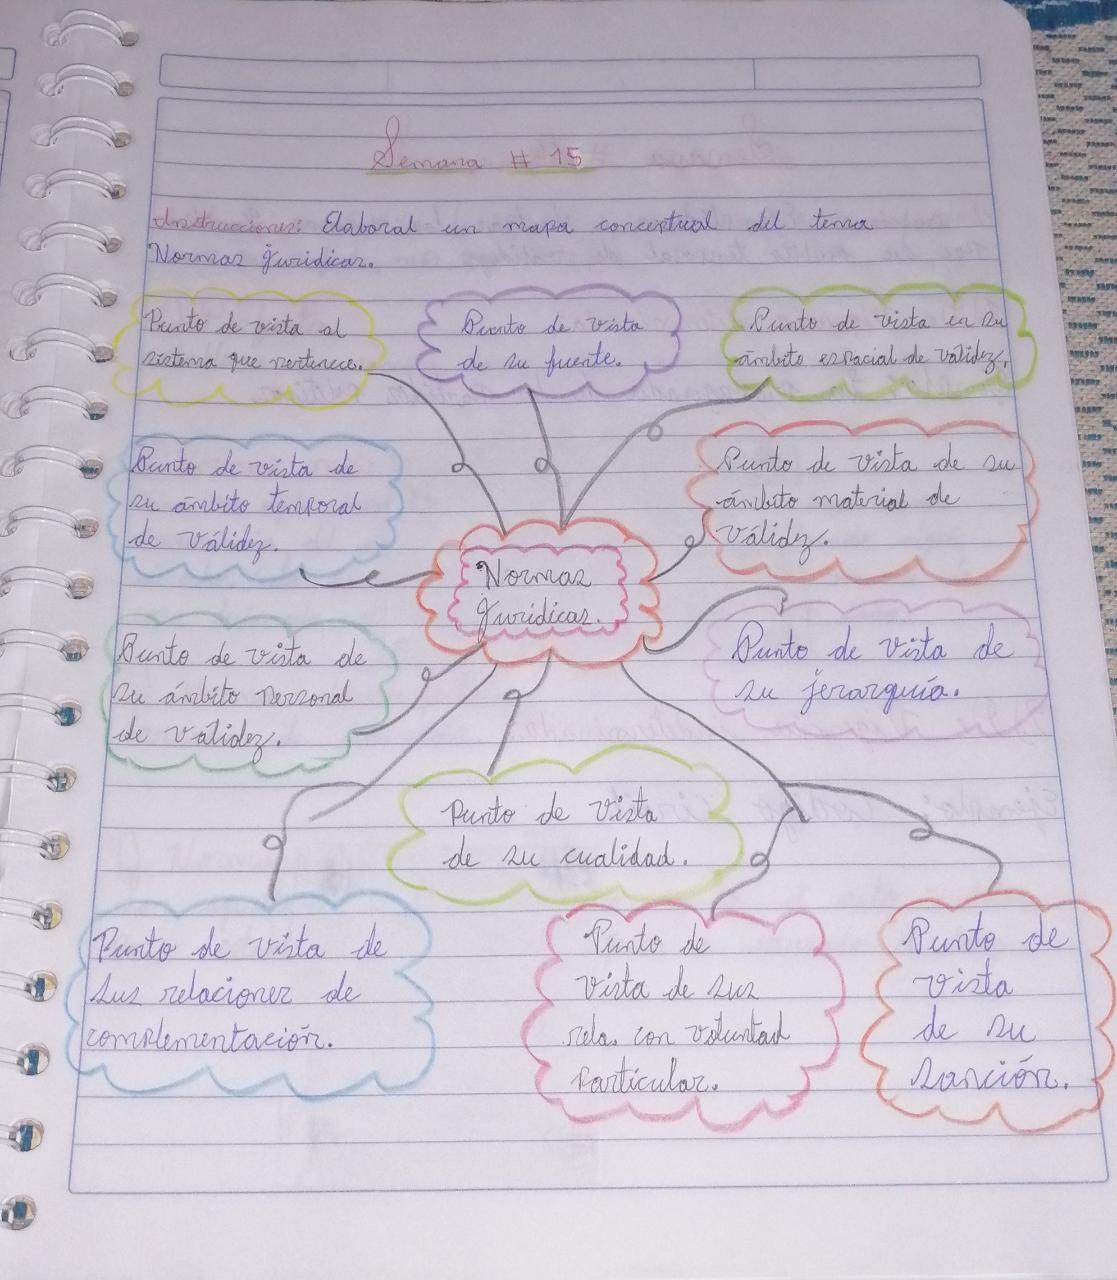 Semana # 15
Instrucciones: Elaboral un mapa conceptual del tema
Normas Juridicas.
Punto de vista al
sistema que pertenece.
Punto de vista
de su fuente.
Punto de vista en su
ámbito espacial de válidez.
Punto de vista de
su ámbito temporal
de válidez.
Punto de vista de su
ámbito material de
válidez.
Normas
Juridicas.
Punto de vista de
su ámbito personal
de válidez.
Punto de vista de
su jerarquía.
Punto de vista
de su cualidad.
Punto de vista de
sus relaciones de
complementación.
Punto de
vista de sus
rela. con voluntad
Particular.
Punto de
vista
de su
sanción.